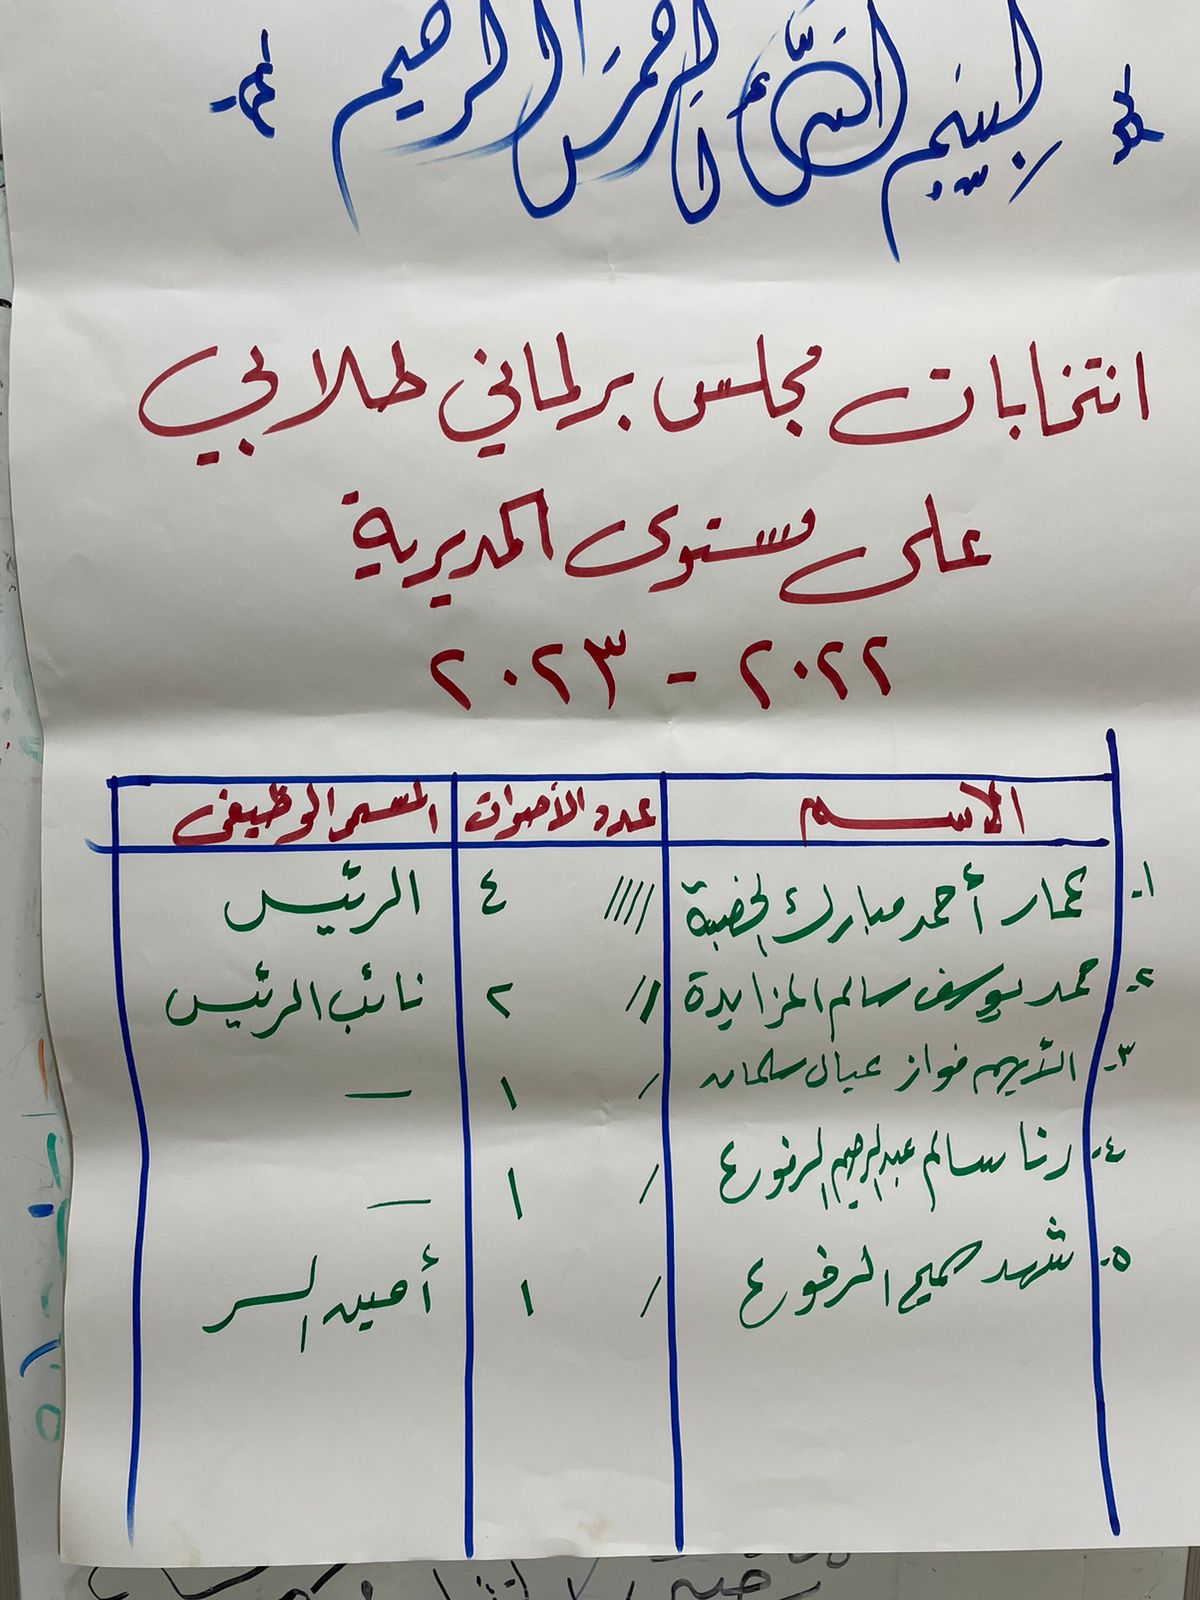 بسم الله الرحمن الرحيم
انتخابات مجلس برلماني طلابي
على مستوى المديرية
٢٠٢٢ - ٢٠٢٣
الاسم عدد الأصوات المسمى الوظيفي
١- عمار أحمد مبارك الخضبة //// ٤ الرئيس
٢- حمد يوسف سالم المزايدة // ٢ نائب الرئيس
٣- الأيهم فواز عيال سلمان / ١ —
٤- رنا سالم عبدالرحيم الرفوع / ١ —
٥- شهد سميح الرفوع / ١ أمين السر